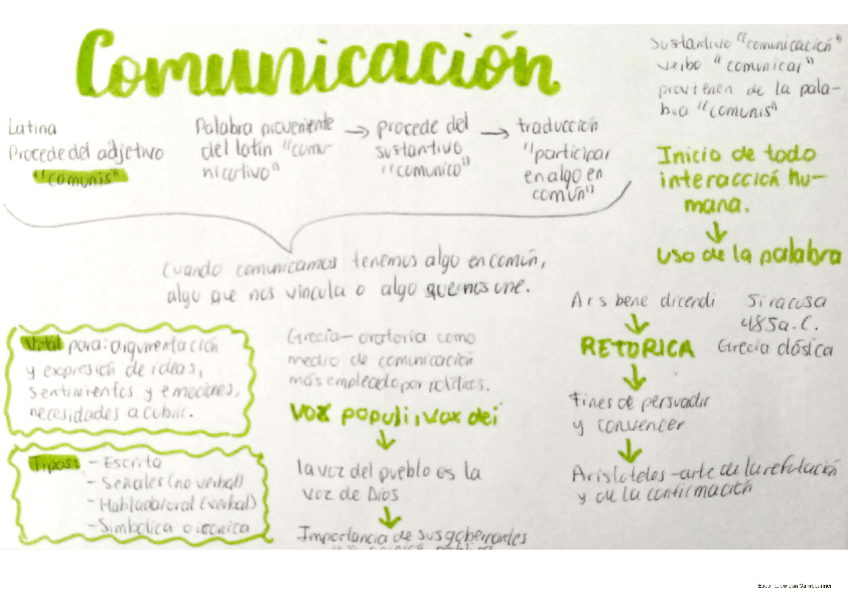 Comunicación
Latina
Procede del adjetivo
"comunis"
Palabra proveniente
del latín "comu-
nicativo"
→ procede del
sustantivo
"comunico"
→ traducción
"participar
en algo en
común"
Cuando comunicamos tenemos algo en común,
algo que nos vincula o algo que nos une.
Vital para: argumentación
y expresión de ideas,
sentimientos y emociones,
necesidades a cubrir.
Tipos: - Escrito
- Señales (no verbal)
- Hablada/oral (verbal)
- Simbólica o icónica
Grecia - oratoria como
medio de comunicación
más empleado por políticos.
Vox populi, vox dei
la voz del pueblo es la
voz de Dios
Importancia de sus gobernantes
sustantivo "comunicación"
verbo "comunicar"
provienen de la pala-
bra "comunis"
Inicio de todo
interacción hu-
mana.
uso de la palabra
Ars bene dicendi
RETORICA
Siracusa
485 a.C.
Grecia clásica
Fines de persuadir
y convencer
Aristoteles - arte de la refutación
y de la confirmación